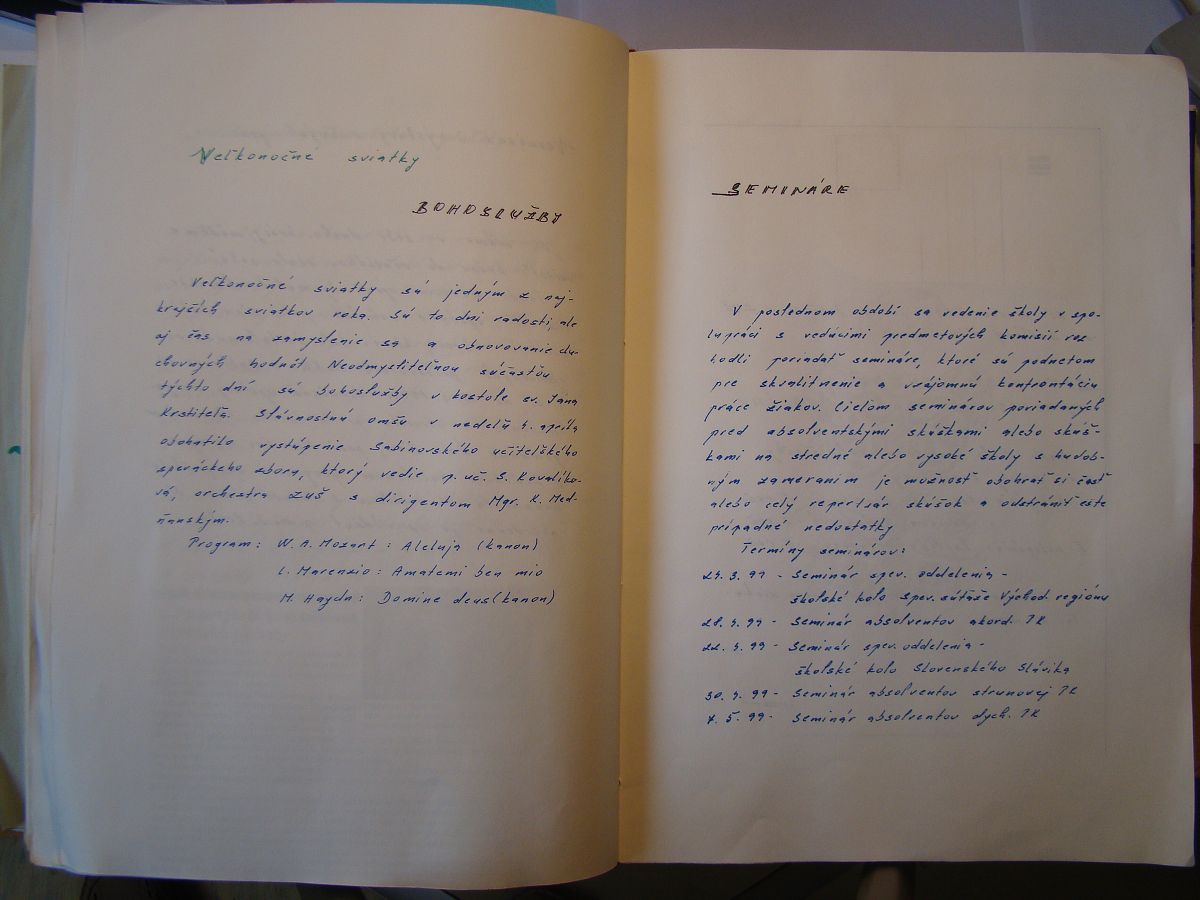 Veľkonočné sviatky
BOHOSLUŽBY
Veľkonočné sviatky sú jedným z naj-
krajších sviatkov roka. Sú to dni radosti, ale
aj čas na zamyslenie sa a obnovovanie du-
chovných hodnôt. Neodmysliteľnou súčasťou
týchto dní sú bohoslužby v kostole sv. Jana
Krstiteľa. Slávnostnú omšu v nedeľu 4. apríla
obohatilo vystúpenie Sabinovského učiteľského
speváckeho zboru, ktorý vedie p. uč. S. Kovalíko-
vá, orchestra ZUŠ s dirigentom Mgr. K. Med-
ňanským.
Program: W. A. Mozart: Aleluja (kanon)
L. Marenzio: Amatemi ben mio
M. Haydn: Domine deus (kanon)
SEMINÁRE
V poslednom období sa vedenie školy v spo-
lupráci s vedúcimi predmetových komisií roz
hodli poriadať semináre, ktoré sú podnetom
pre skvalitnenie a vzájomnú konfrontáciu
práce žiakov. Cieľom seminárov poriadaných
pred absolventskými skúškami alebo skúš-
kami na stredné alebo vysoké školy s hudob-
ným zameraním je možnosť obohrať si časť
alebo celý repertoár skúšok a odstrániť ešte
prípadné nedostatky
Termíny seminárov:
24. 3. 99 - Seminár spev. oddelenia -
školské kolo spev. súťaže Východ. regiónu
28. 4. 99 - Seminár absolventov akord. PK
22. 4. 99 - Seminár spev. oddelenia -
školské kolo Slovenského Slávika
30. 4. 99 - Seminár absolventov strunovej PK
7. 5. 99 - Seminár absolventov dych. PK